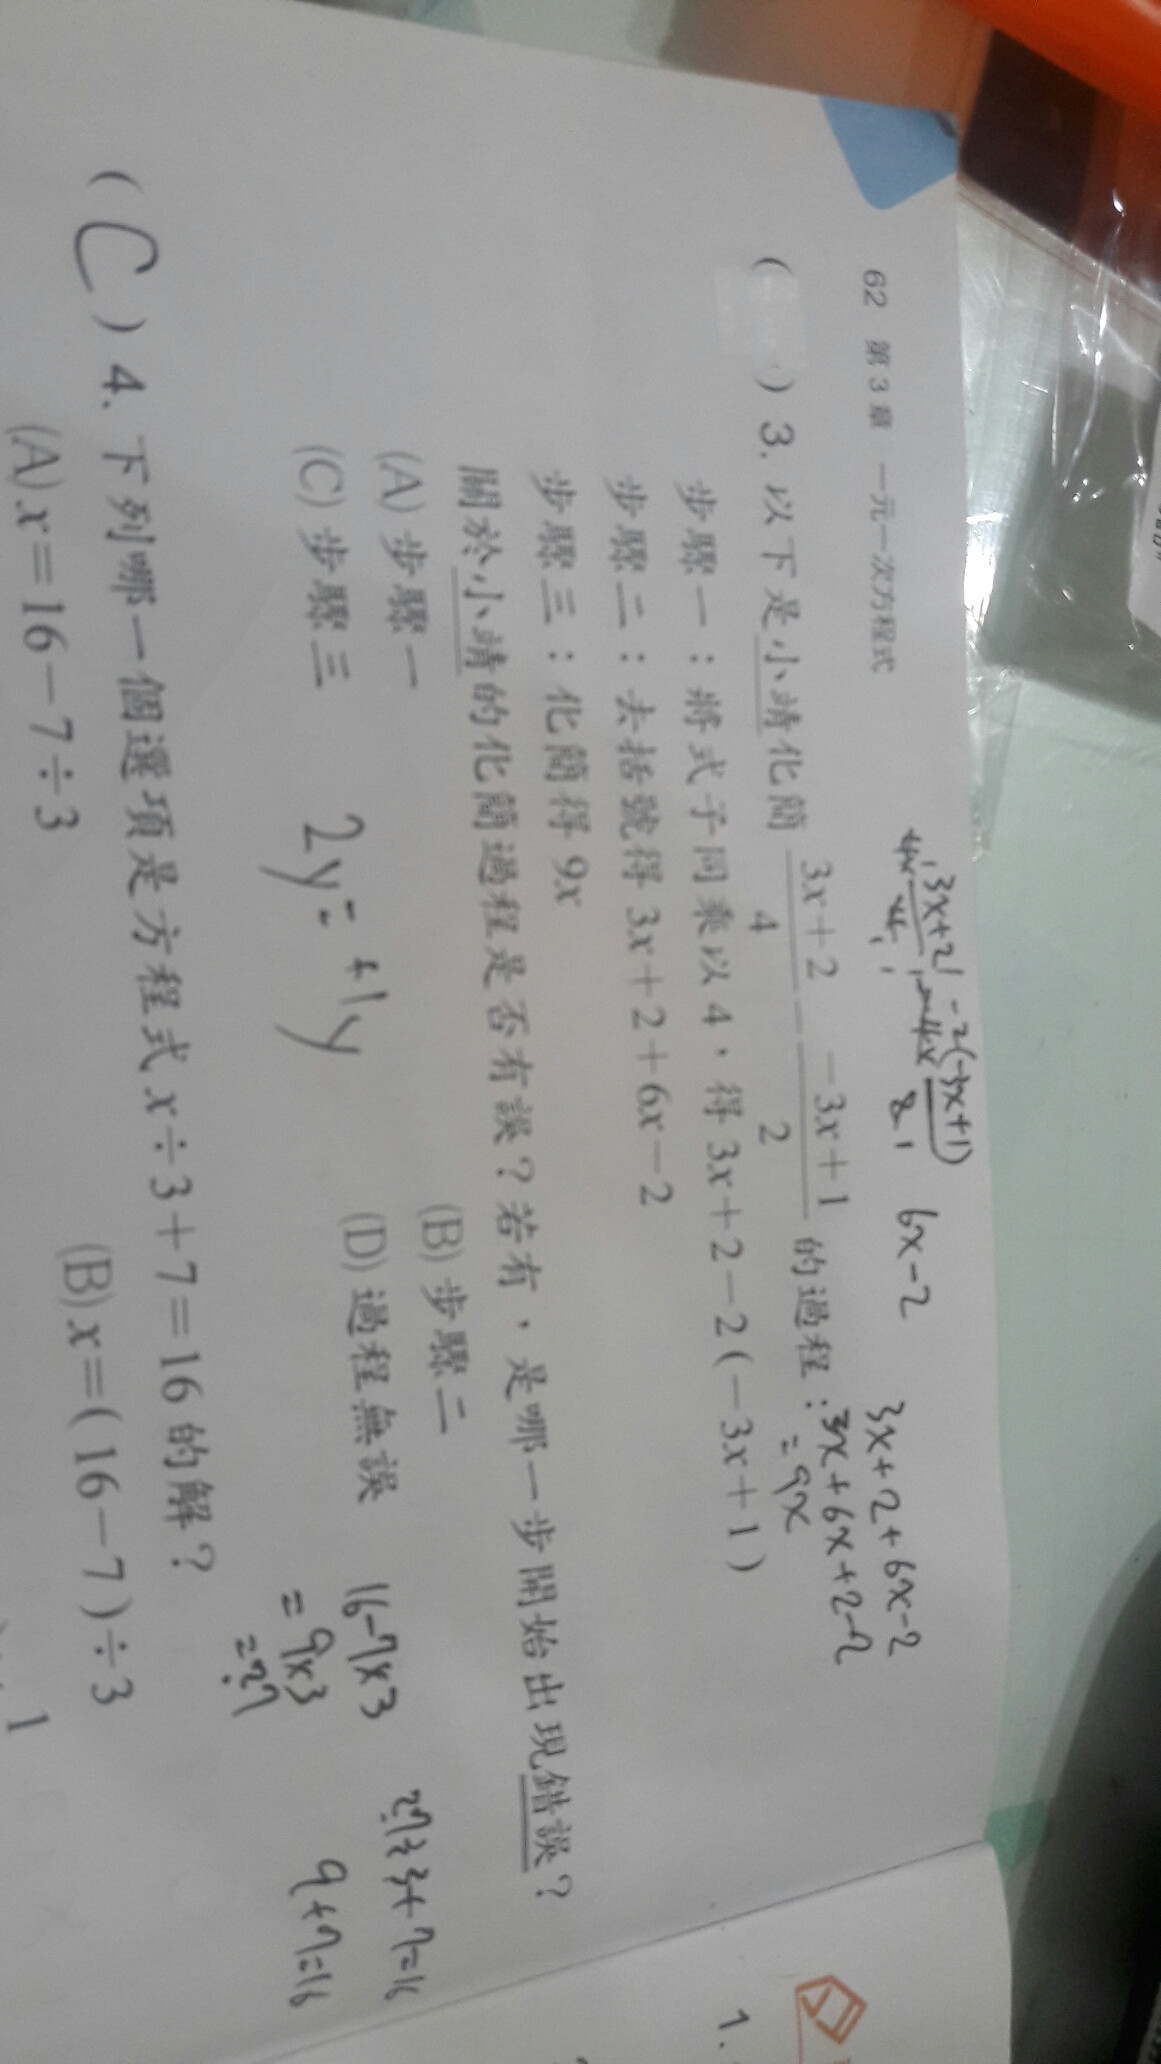 62 第3章 一元一次方程式
( ) 3. 以下是小靖化簡 \frac{3x+2}{4} - \frac{-3x+1}{2} 的過程：
步驟一：將式子同乘以 4，得 3x+2-2(-3x+1)
步驟二：去括號得 3x+2+6x-2
步驟三：化簡得 9x
關於小靖的化簡過程是否有誤？若有，是哪一步開始出現錯誤？
(A) 步驟一 (B) 步驟二
(C) 步驟三 (D) 過程無誤
6x-2
3x+2+6x-2
3x+6x+2-2
=9x
16-7x3
=9x3
=27
27÷3+7=16
9+7=16
( C ) 4. 下列哪一個選項是方程式 x÷3+7=16 的解？
(A) x=16-7÷3 (B) x=(16-7)÷3
1.